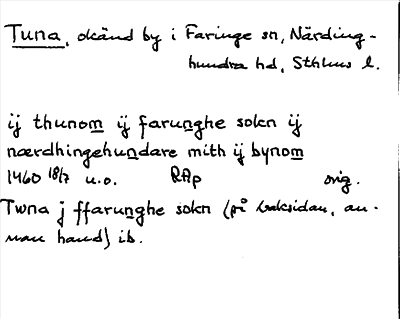 Tuna, okänd by i Faringe sn, Närding-
hundra hd, Sthlms l.
ij thunom ij farunghe sokn ij
nærdhingehundare mith ij bynom
1460 18/7 u.o. RAp orig.
Twna j ffarunghe sokn (på baksidan, an-
nan hand) ib.